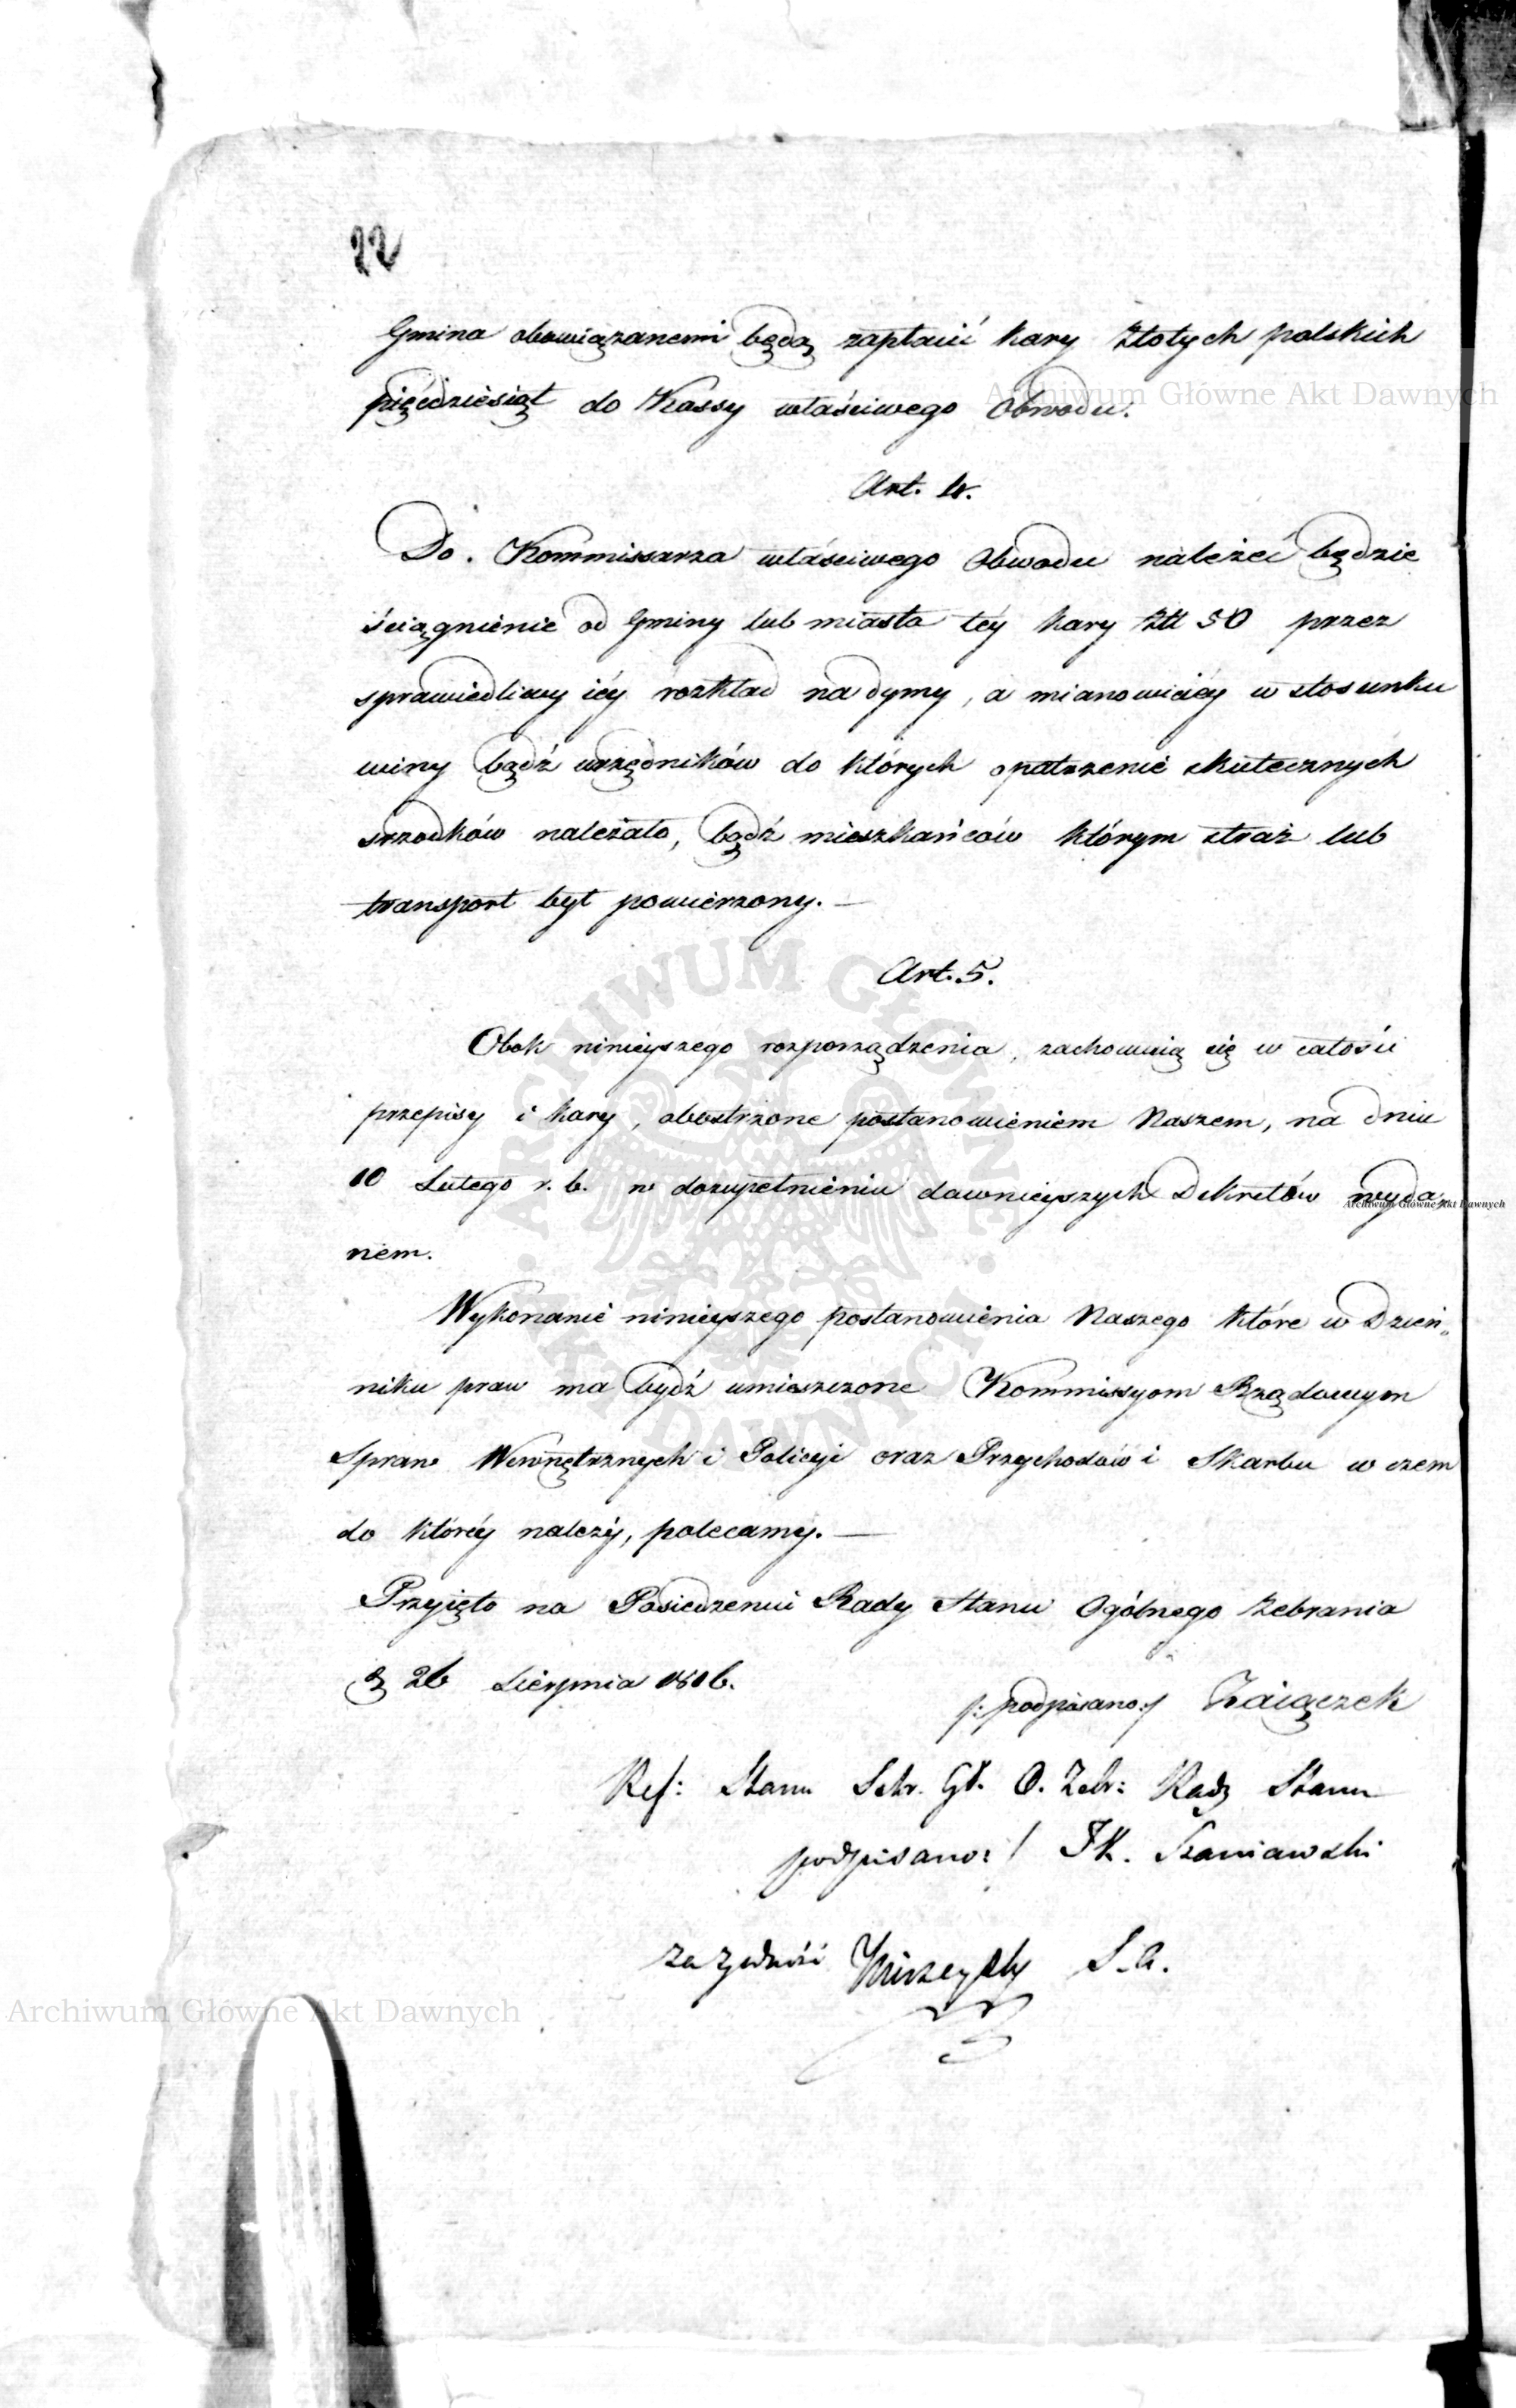 22
Gmina obowiązanemi będą zapłacić kary Złotych polskich
pięćdziesiąt do Kassy właściwego Obwodu.
Art. 4.
Do Kommissarza właściwego Obwodu należeć będzie
ściągnienie od Gminy lub miasta téy kary Złł 50 przez
sprawiedliwy iéy rozkład na dymy, a mianowiciéy w stosunku
winy bądź urzędników do których opatrzenie skutecznych
srzodków należało, bądź mieszkańców którym straż lub
transport był powierzony. —
Art. 5.
Obok ninieyszego rozporządzenia, zachowuią się w całości
przepisy i kary, obostrzone postanowieniem Naszem, na dniu
10 Lutego r. b. w dozupełnieniu dawnieyszych Dekretów wyda,,
nem.
Wykonanie ninieyszego postanowienia Naszego które w Dzień,,
niku praw ma bydź umieszczone Kommissyom Rządowym
Spraw Wewnętrznych i Policyi oraz Przychodów i Skarbu w czem
do któréy należy, polecamy. —
Przyięto na Posiedzeniu Rady Stanu Ogólnego Zebrania
d 26 Sierpnia 1816.
/: podpisano :/ Zaiączek
Ref: Stanu Sekr. Gł. O. Zebr: Rady Stanu
podpisano: / JK. Szaniawski
Za zgodność S. A.
Archiwum Główne Akt Dawnych
Archiwum Główne Akt Dawnych
Archiwum Główne Akt Dawnych
ARCHIWUM GŁÓWNE · AKT DAWNYCH ·